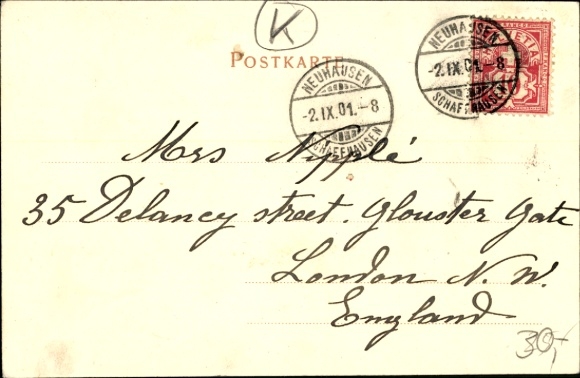 K
POSTKARTE
NEUHAUSEN
-2.IX.01.-8
SCHAFFHAUSEN
NEUHAUSEN
-2.IX.01.-8
SCHAFFHAUSEN
FRANCO
HELVETIA
Mrs Nipplé
35 Delancy street. Glouster Gate
London N. W.
England
30,-